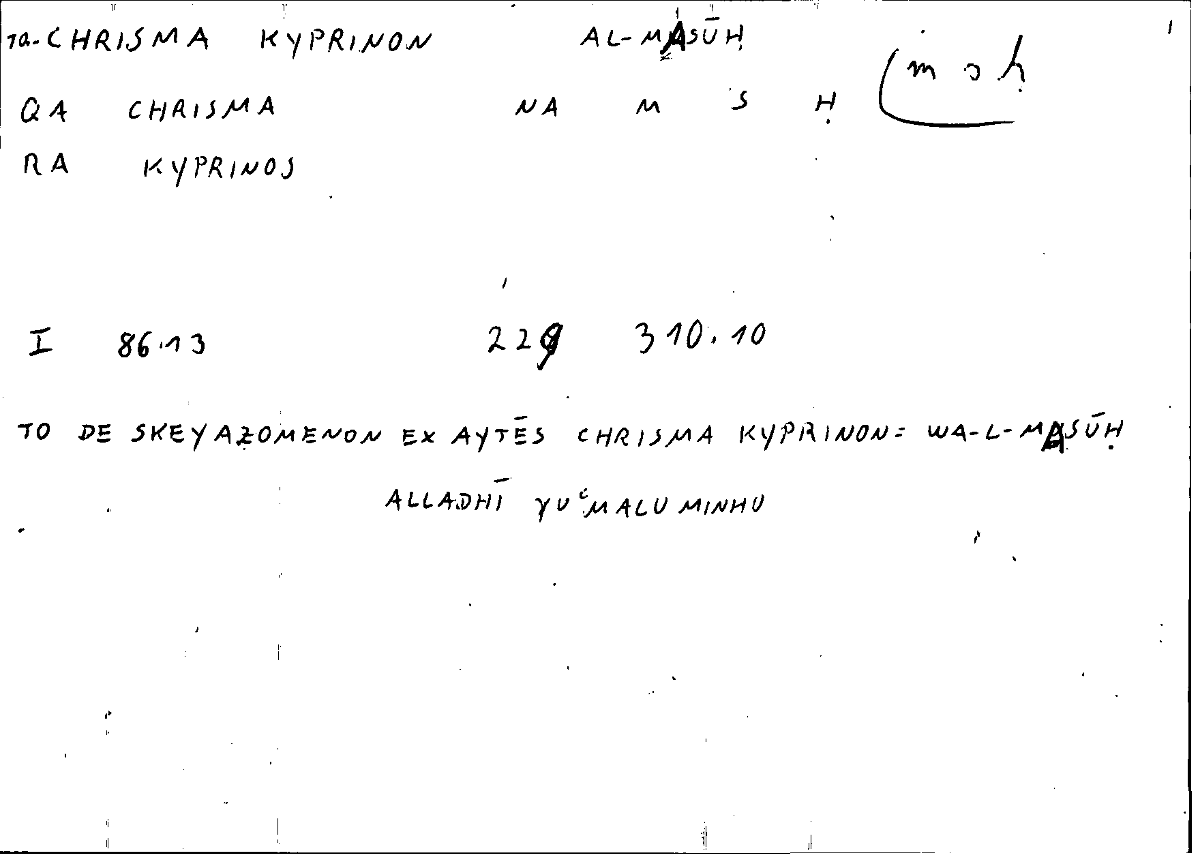 Ta-CHRISMA KYPRINON AL-MASŪḤ 1
QA CHRISMA NA M S Ḥ (m s ḥ
RA KYPRINOS
I 86.13 229 310.10
TO DE SKEYAZOMENON EX AYTĒS CHRISMA KYPRINON = WA-L-MASŪḤ
ALLADHĪ YUʿMALU MINHU